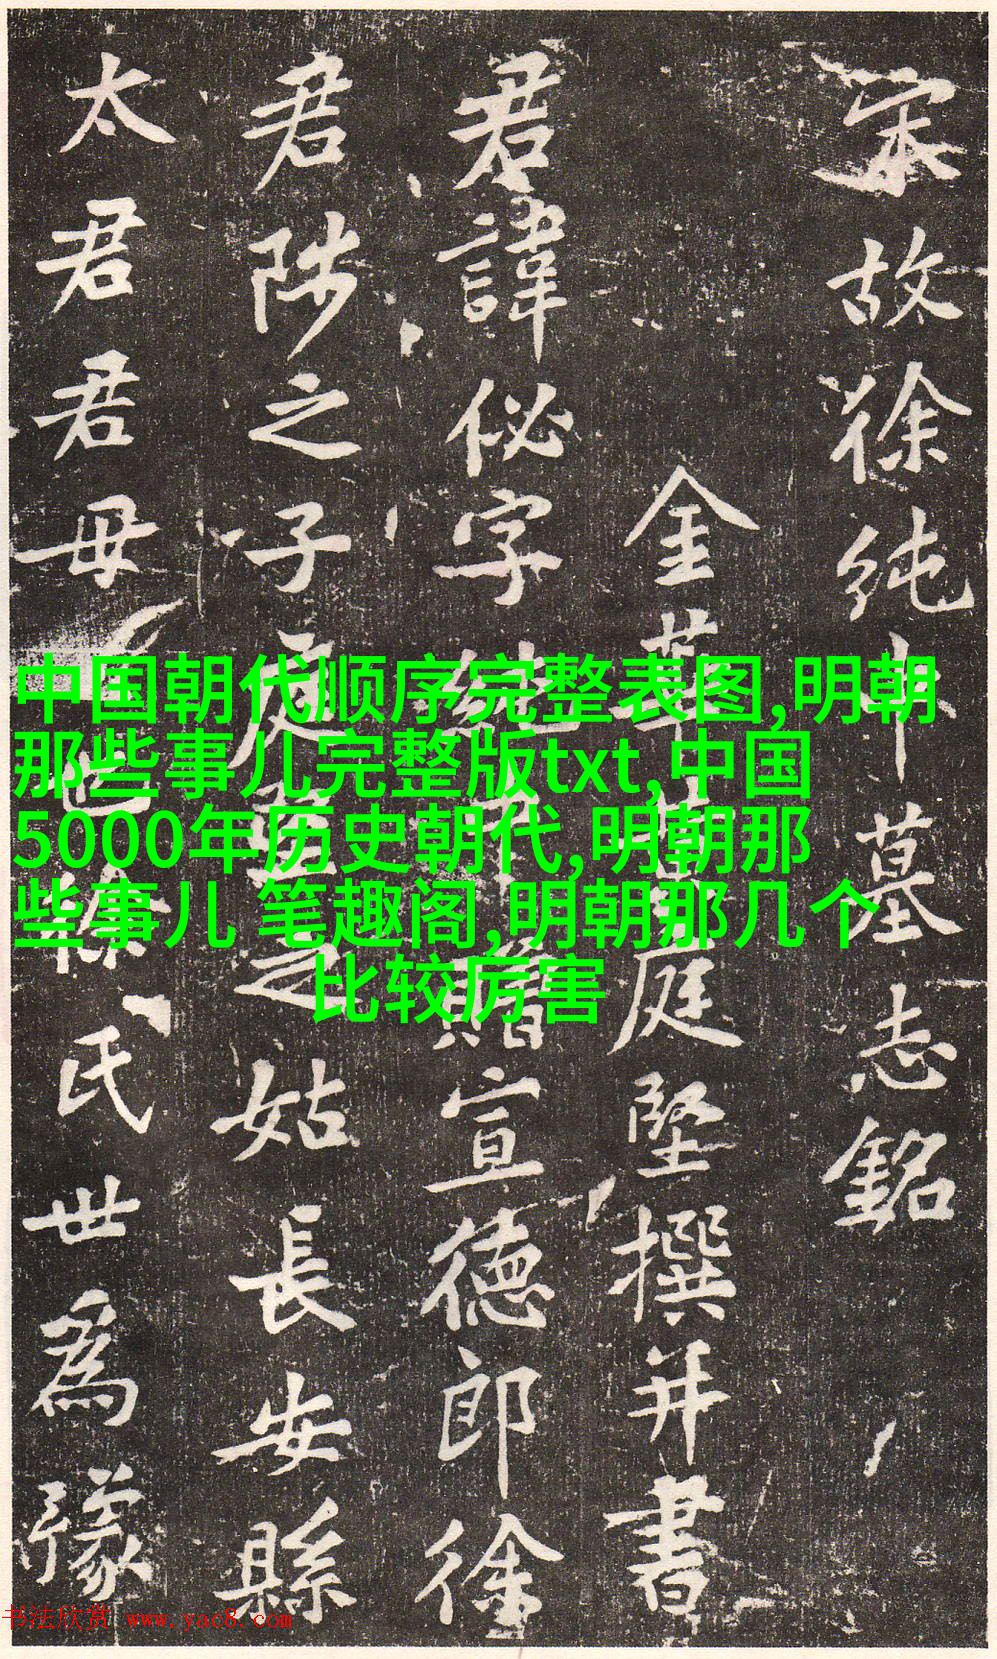 宋故徐纯中墓志銘
金華黄庭堅撰并書
君諱佖字純中贈宣德郎徐
君陟之子處士之姑長安縣
太君君母也徐氏世為豫
中国朝代顺序完整表图,明朝
那些事儿完整版txt,中国
5000年历史朝代,明朝那
些事儿 笔趣阁,明朝那几个
比较厉害
书法欣赏 www.yac8.com